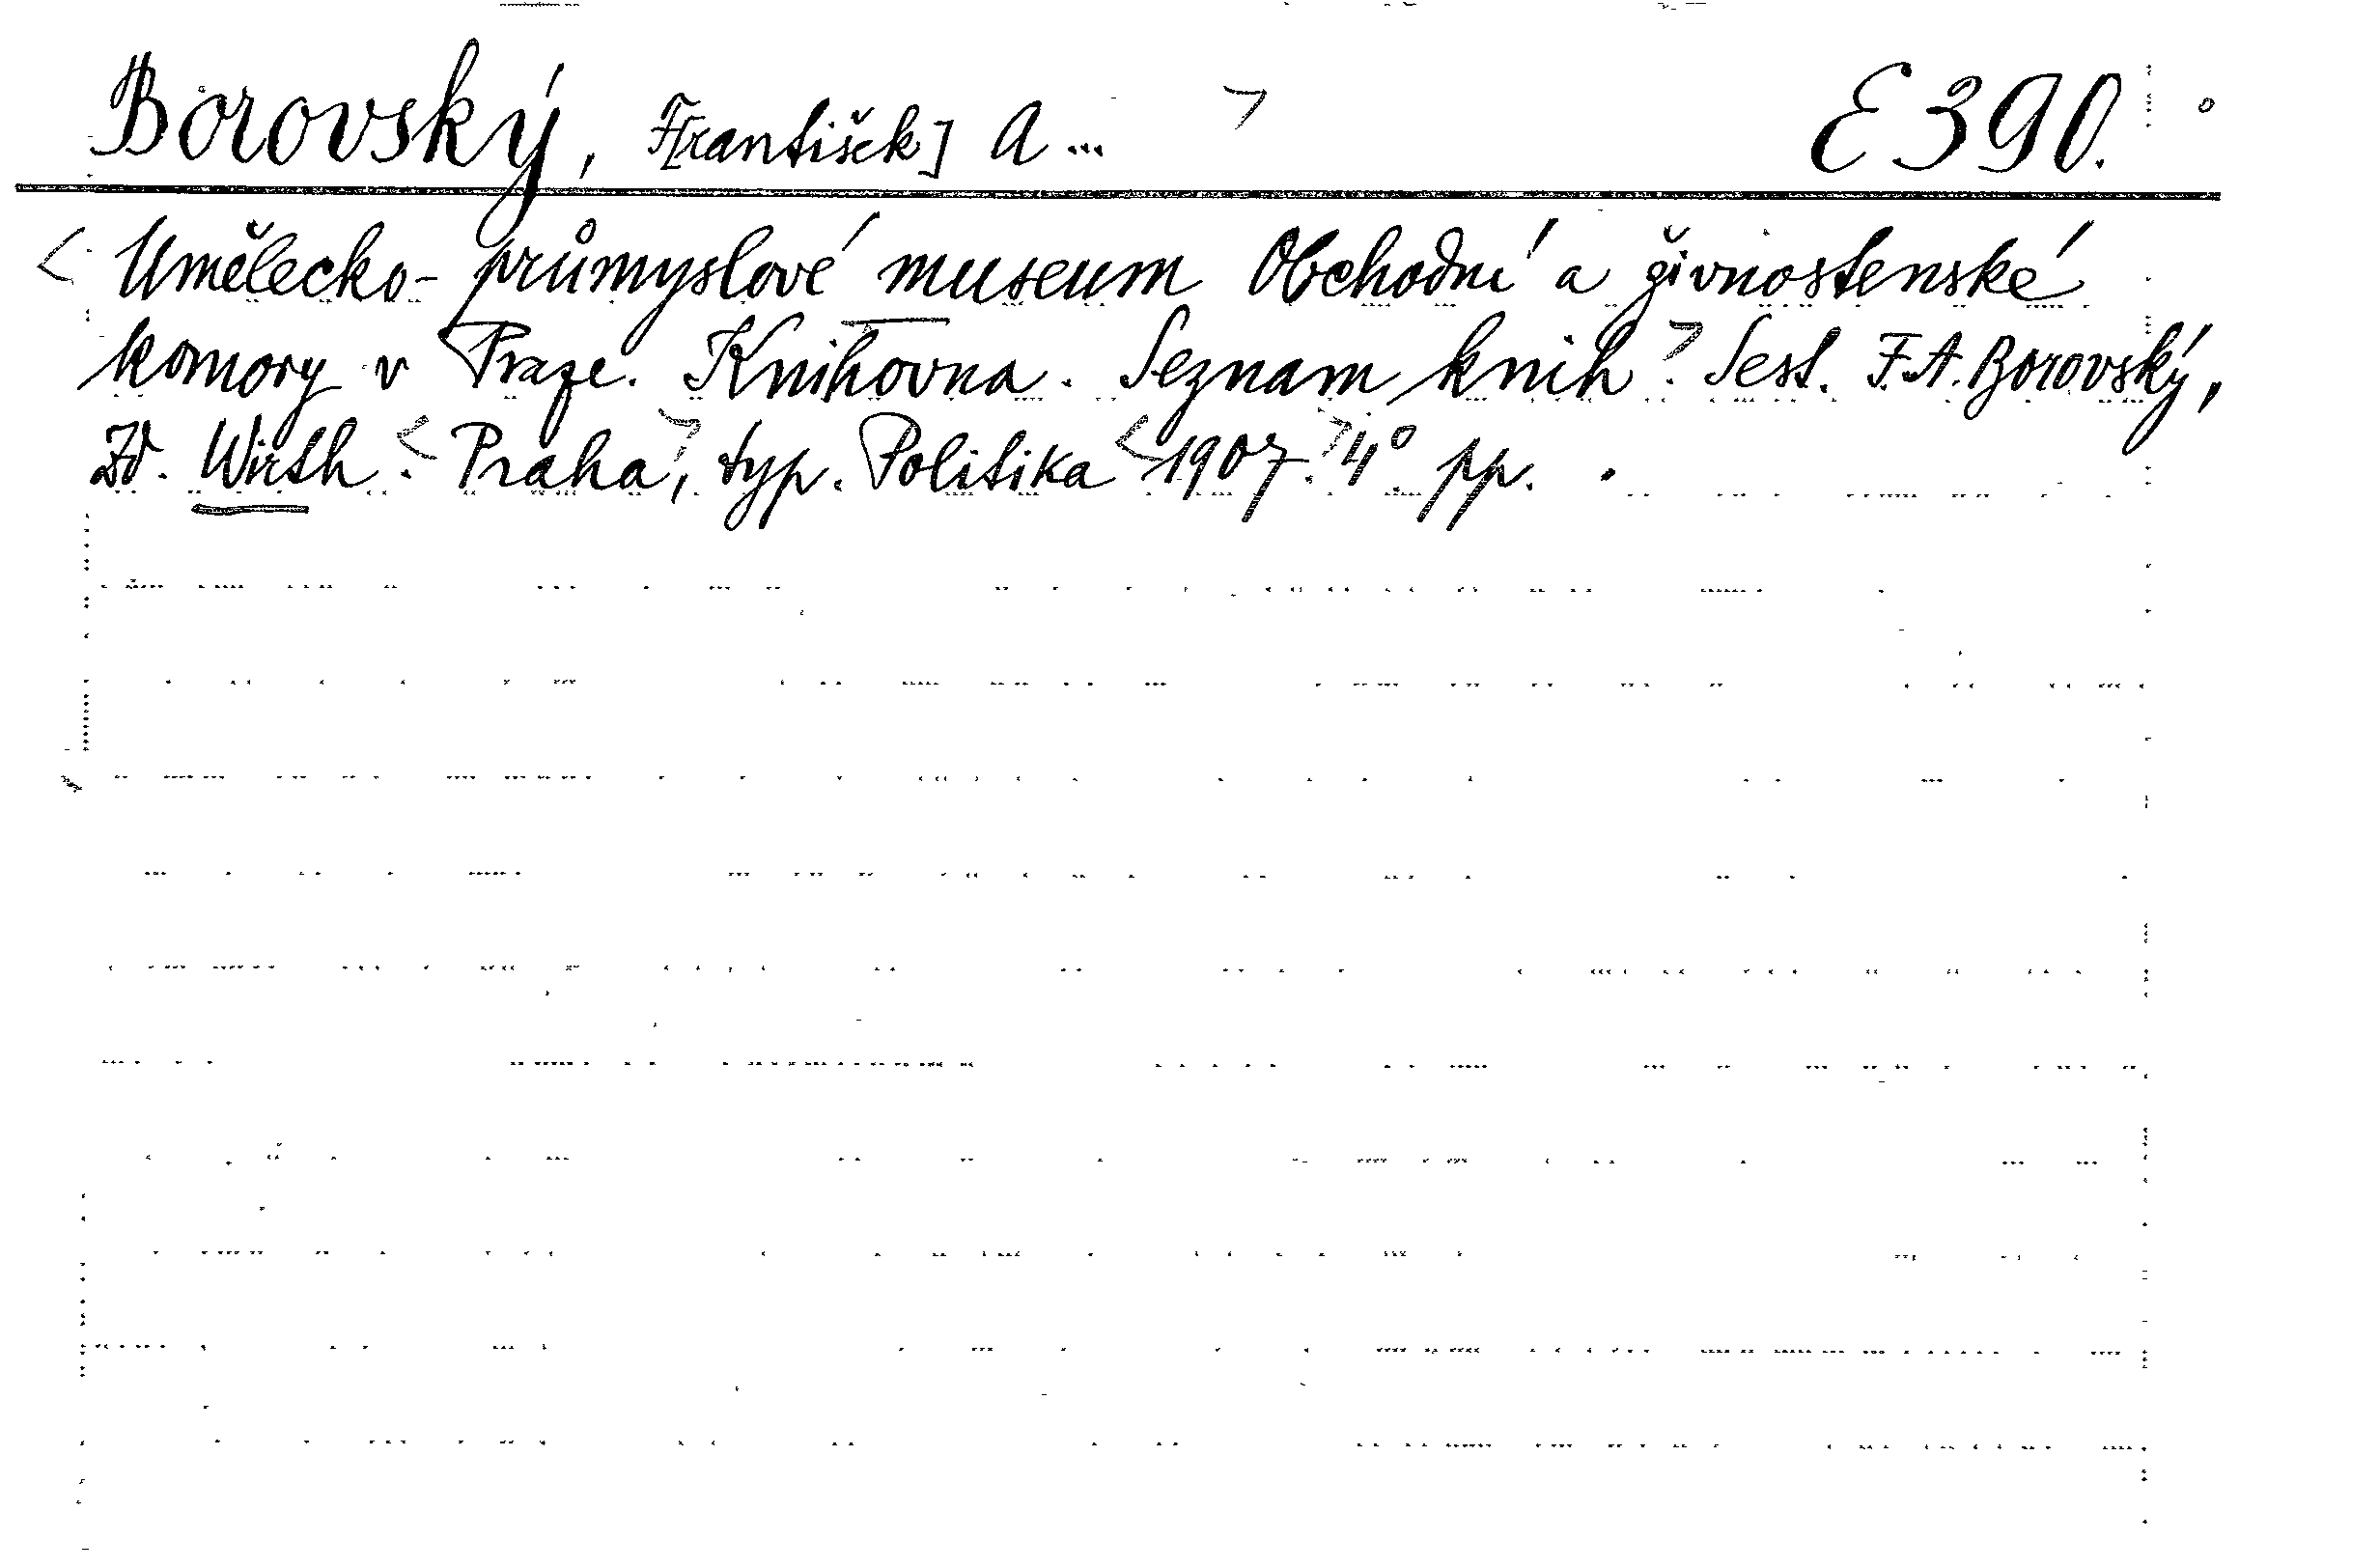 Borovský, F[rantišek] A... > E 390.
< Umělecko-průmyslové museum Obchodní a živnostenské
komory v Praze. Knihovna. Seznam knih >. Sest. F. A. Borovský,
Zd. Wirth. < Praha >, typ. Politika < 1907. > 4° pp. .